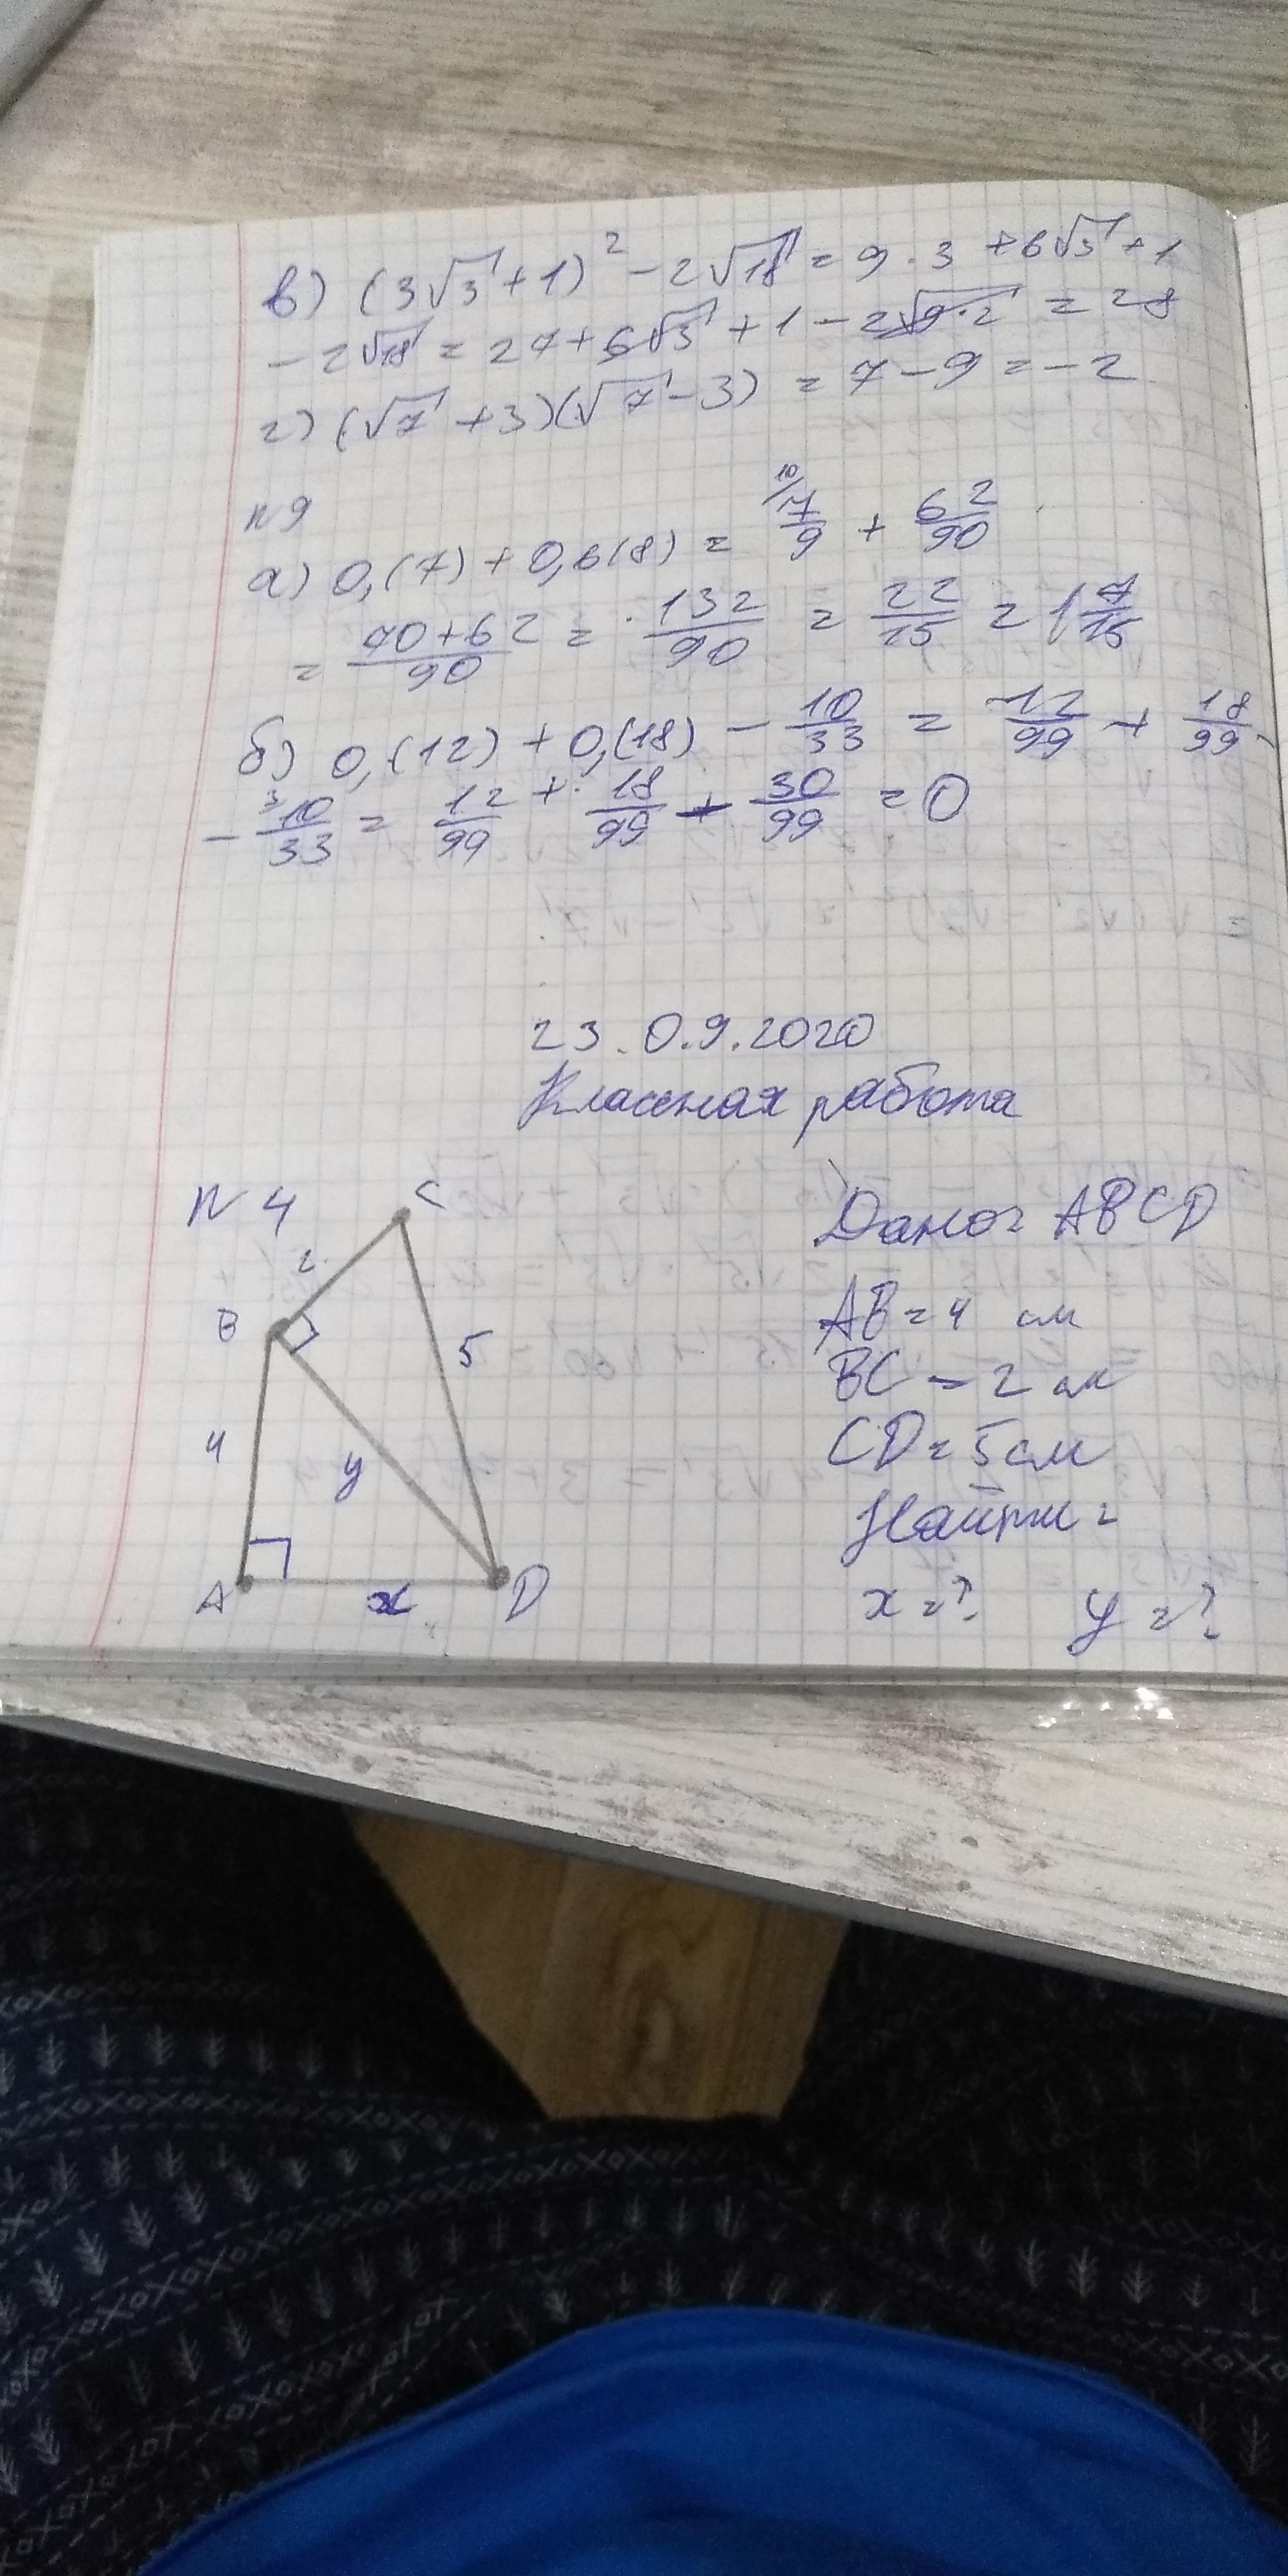 в) (3√3 + 1)² - 2√18 = 9 · 3 + 6√3 + 1
- 2√18 = 27 + 6√3 + 1 - 2√9·2 = 28
г) (√7 + 3)(√7 - 3) = 7 - 9 = -2
N 9
а) 0,(7) + 0,6(8) = 10/ 7/9 + 62/90
= 70+62/90 = 132/90 = 22/15 = 1 7/15
б) 0,(12) + 0,(18) - 10/33 = 12/99 + 18/99
- 3 10/33 = 12/99 + 18/99 - 30/99 = 0
23.0.9.2020
Классная работа
N 4
C
2
B
5
4
y
A
x
D
Дано: ABCD
AB = 4 см
BC = 2 см
CD = 5 см
Найти:
x = ? y = ?